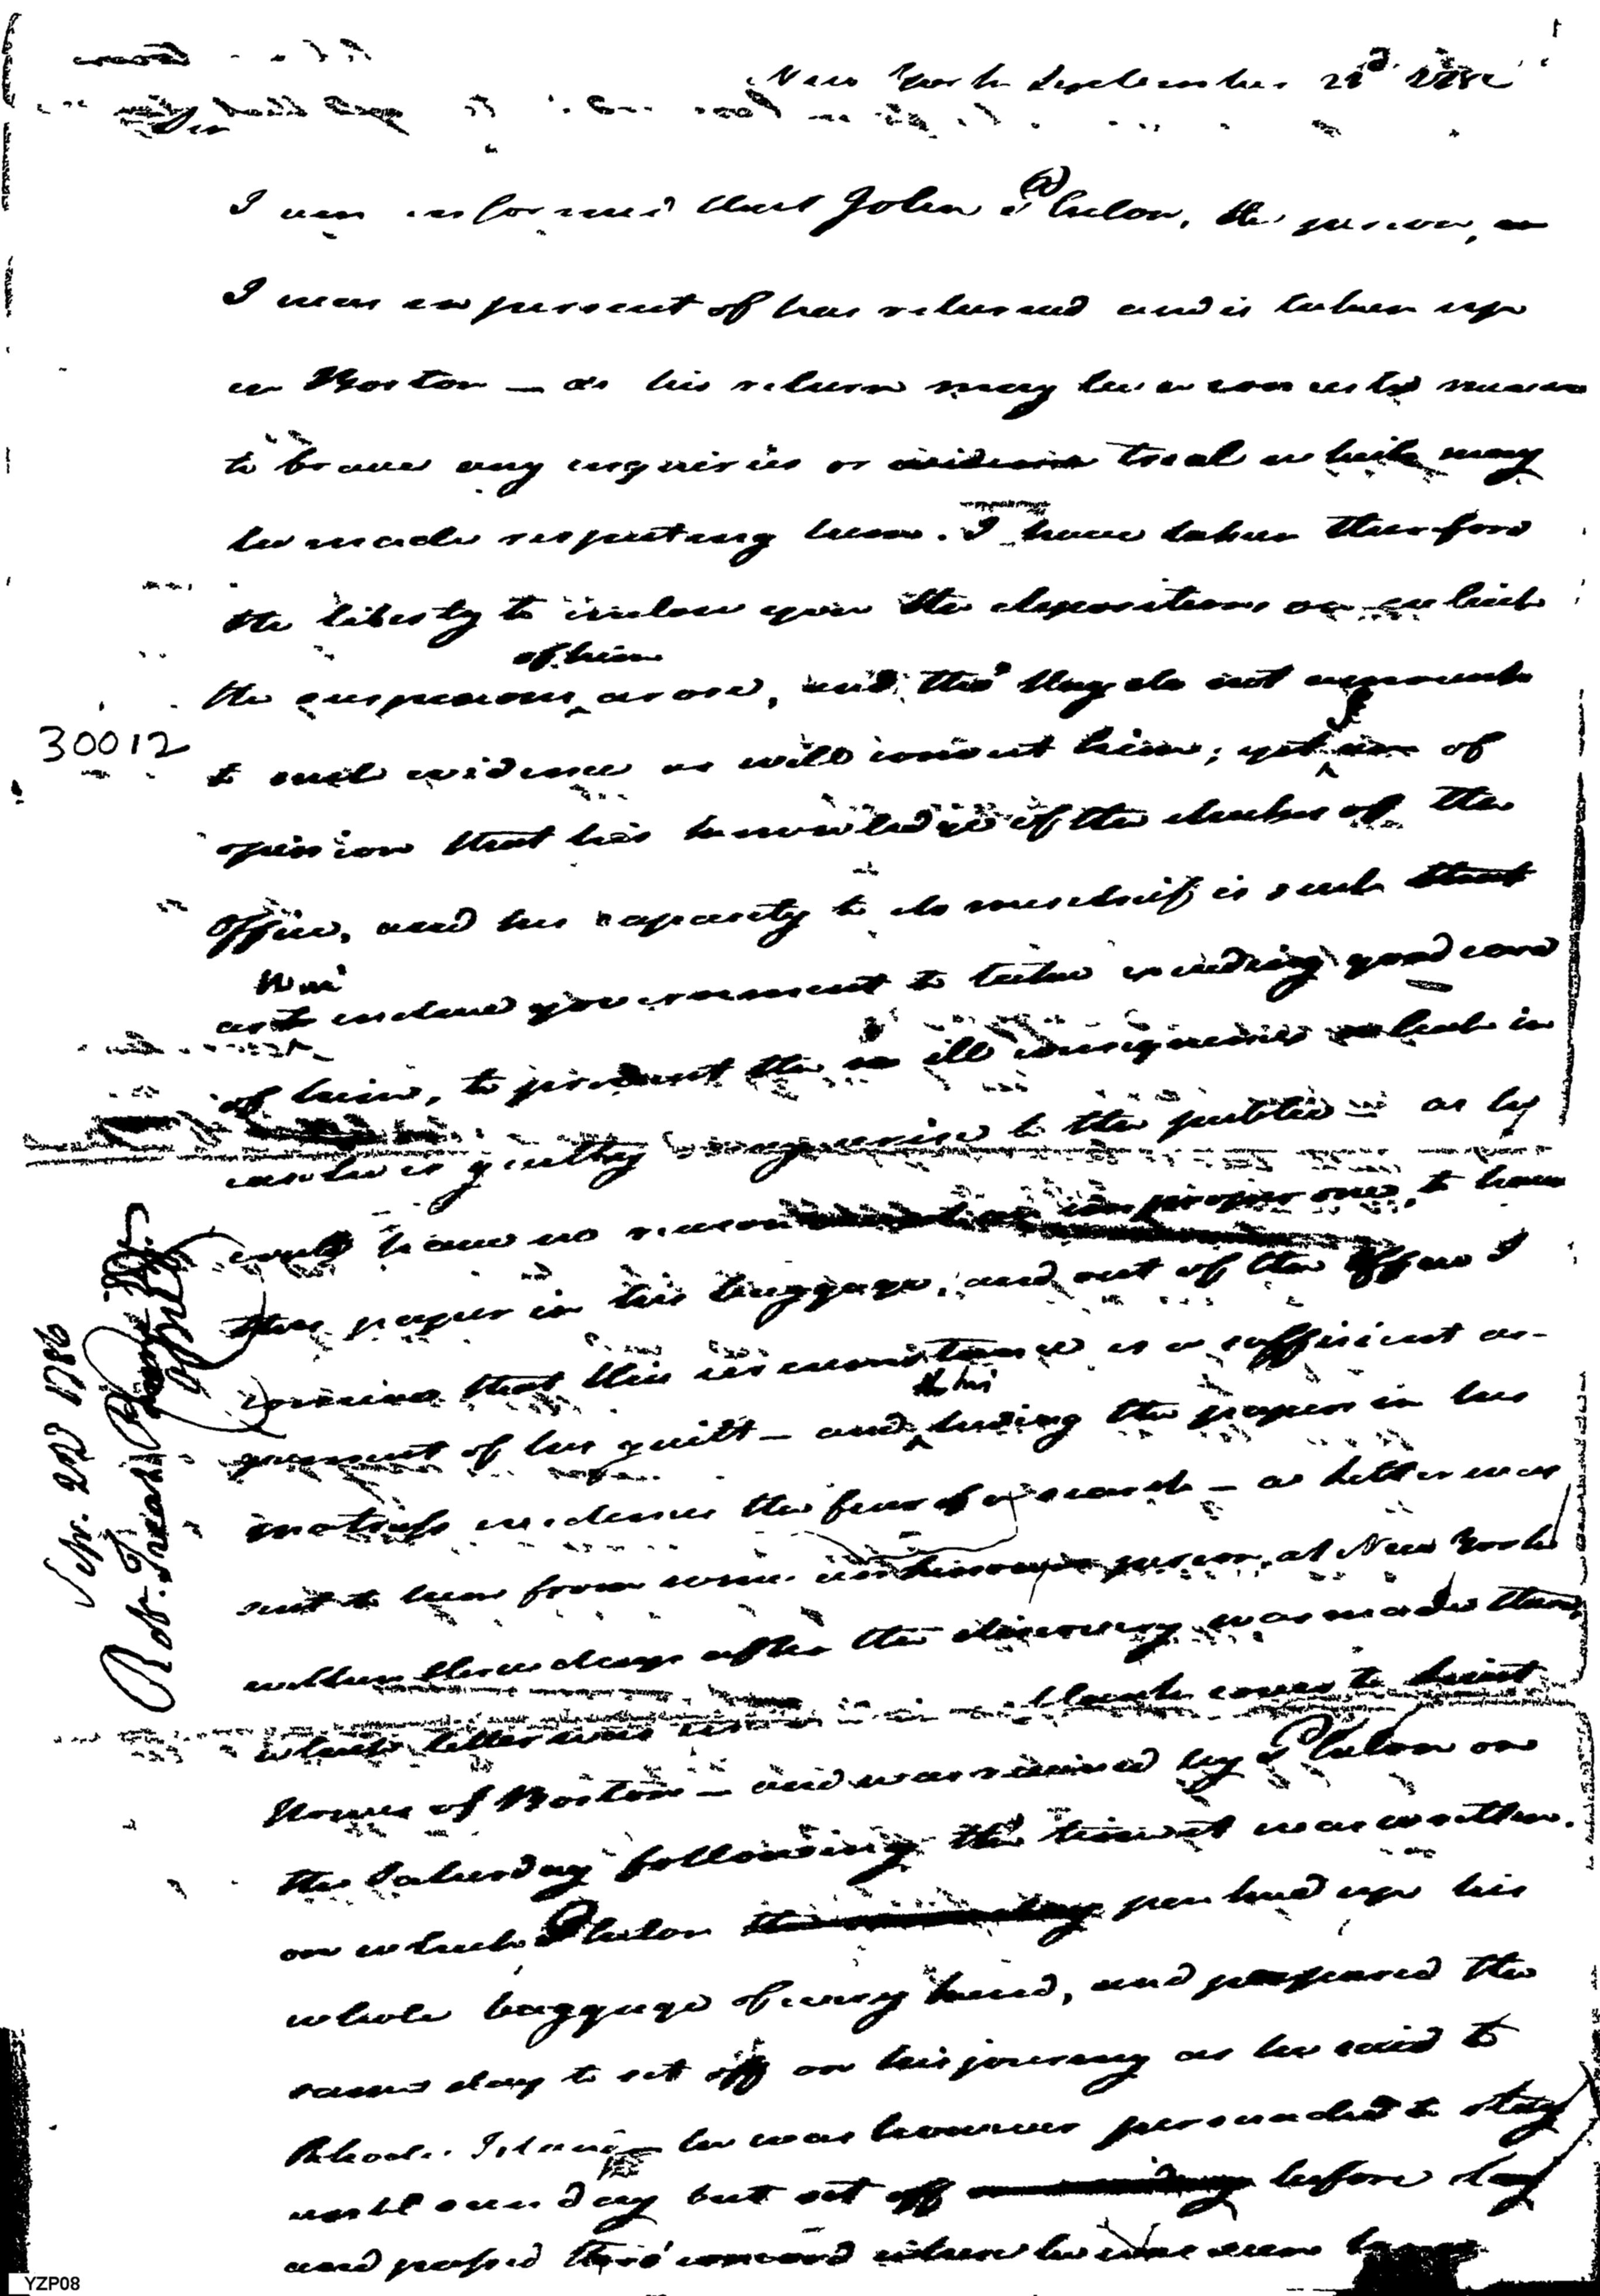 New York September 22d 1786
Sir
I am informed that John Phelon, the person, 
I was in persuit of has returned and is taken up
in Boston — as his return may be a
to brave any inquiries or trial which may
be made respecting him. I have taken therefore
the liberty to inclose you the depositions on which
the suspicions of him arose, and tho' they do not amount
to such evidence as will convict him; yet of
opinion that his knowledge of the checks of the
office, and his capacity to do mischief is such that
as to induce government to take exceeding good care
of him, to prevent the ill consequences which in
case he is guilty may arise to the public — as he
could have no reason proper one, to have
these papers in his baggage, and out of the office I
conceive that this circumstance is a sufficient ar-
gument of his guilt — and hiding the papers in his
matrass evidences the fear of a search — a letter was
sent to him from some unknown person, at New York
within three days after the discovery was made there,
which letter was blank cover to
House of Boston — and was received by Phelon on
the Saturday following the time it was written.
on which Phelon packed up his
whole baggage of every kind, and prepared the
same day to set off on his journey as he said to
Rhode Island he was however persuaded to stay
until sunday but set off before day
and passed thro' concord where he was seen
30012
Sepr. 22d 1786
Rob. Treat
YZP08